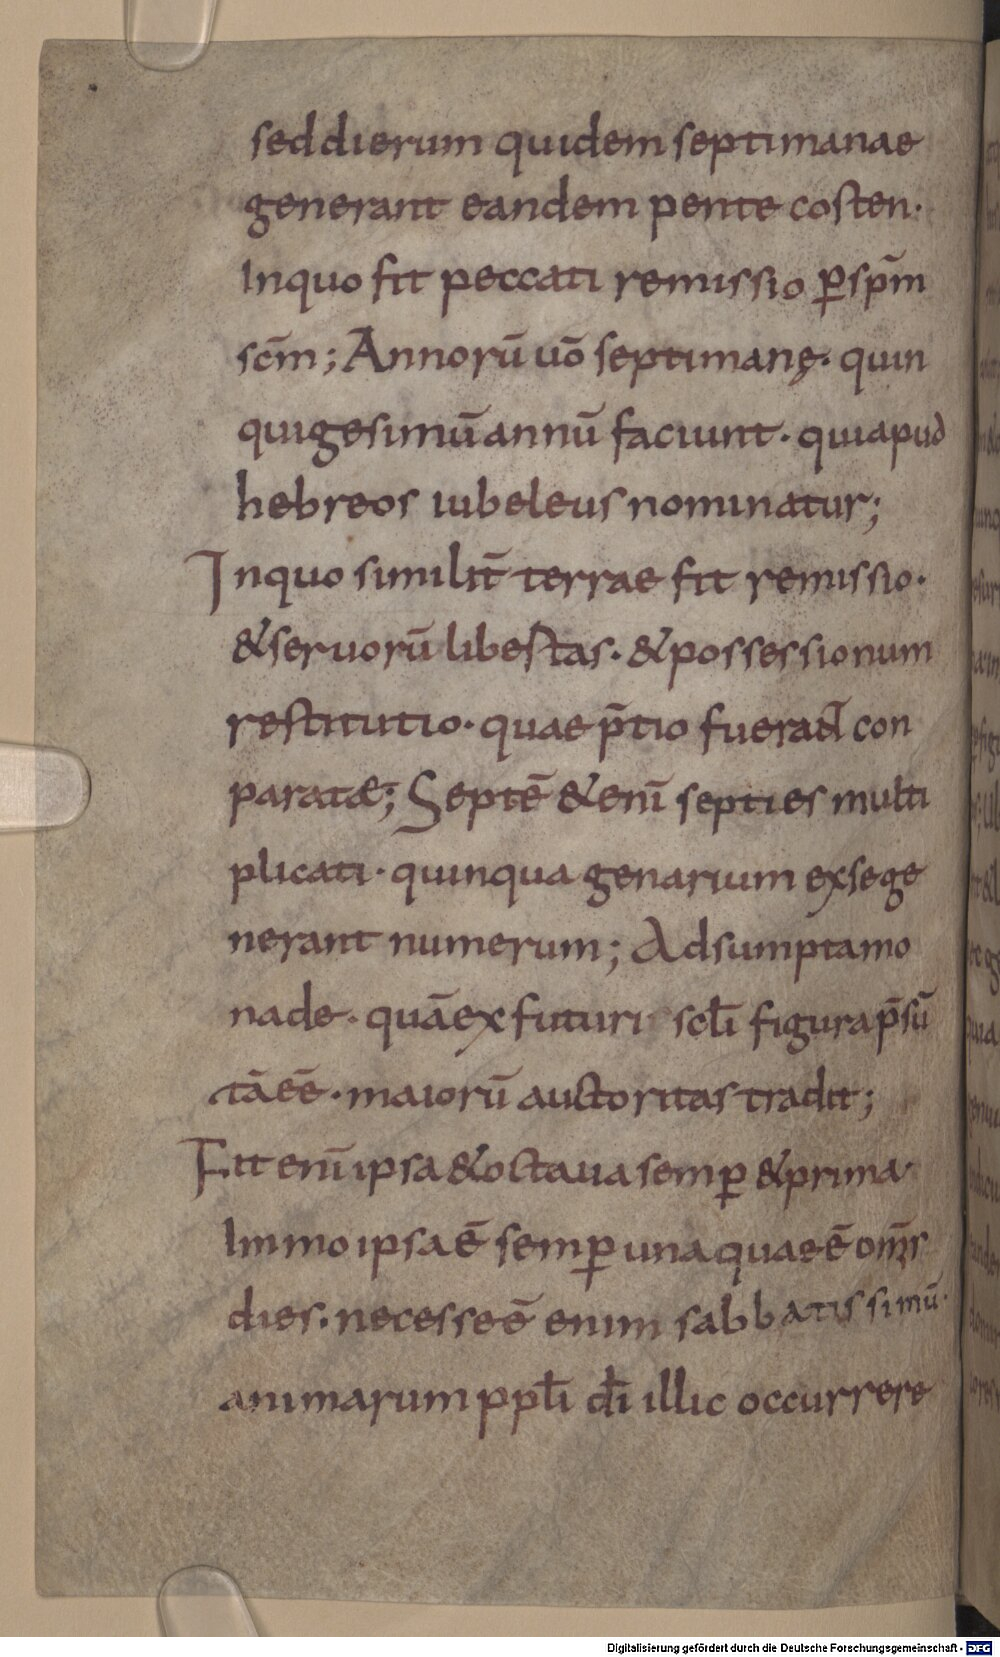 sed dierum quidem septimanae
generant eandem pente costen·
Inquo fit peccati remissio ꝑ sp̄m
scm̄; Annorū uō septimanę· quin
quigesimū annū faciunt· quiapud
hebreos iubeleus nominatur;
Inquo similit̄ terrae fit remissio·
& seruorū libertas· & possessionum
restitutio· quae p̄tio fuerant con
paratæ; Septē &enī septies multi
plicati· quinqua genarium exsege
nerant numerum; Adsumptamo
nade· quāex futuri scl̄i figura p̄sū
tā eē· maiorū auctoritas tradit;
Fit enī ipsa & octaua semꝑ & prima·
Immo ipsa ē semꝑ una quae ē om̄s
dies· necesse ē enim sabbatissimū·
animarum ppl̄i dī illic occurrere
Digitalisierung gefördert durch die Deutsche Forschungsgemeinschaft - DFG